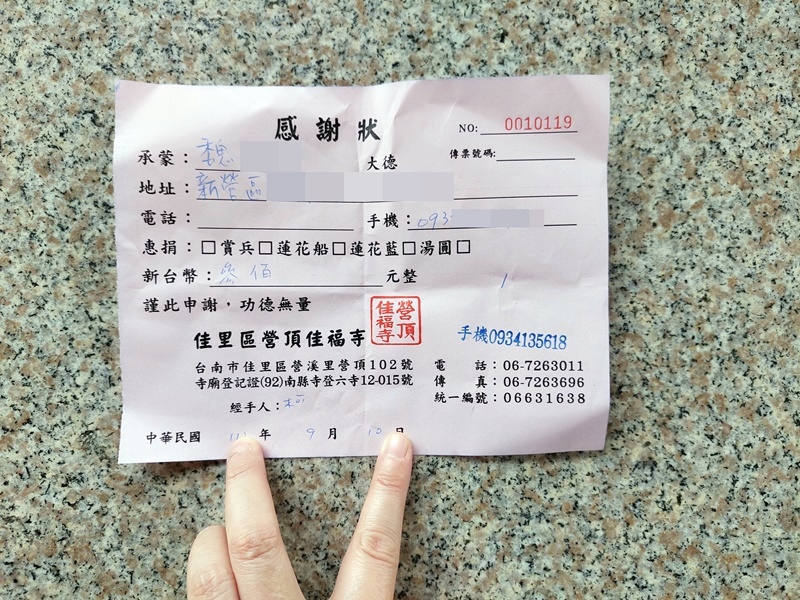 感謝狀
NO: 0010119
承蒙：魏 大德
傳票號碼:
地址：新營區
電話： 手機：093
惠捐：□賞兵□蓮花船□蓮花藍□湯圓□
新台幣：叁佰 元整
謹此申謝，功德無量
營頂佳福寺
佳里區營頂佳福寺
手機0934135618
台南市佳里區營溪里營頂102號
寺廟登記證(92)南縣寺登六寺12-015號
電話：06-7263011
傳真：06-7263696
統一編號：06631638
經手人：柯
中華民國 111年 9月 10日